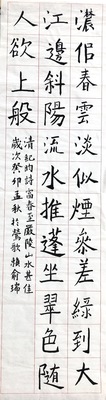 濃佀春雲淡似煙參差綠到大
江邊斜陽流水推蓬坐翠色隨
人欲上般
清紀昀詩富春至嚴陵山水甚佳
歲次癸卯孟秋於鶯歌賴俞瑞